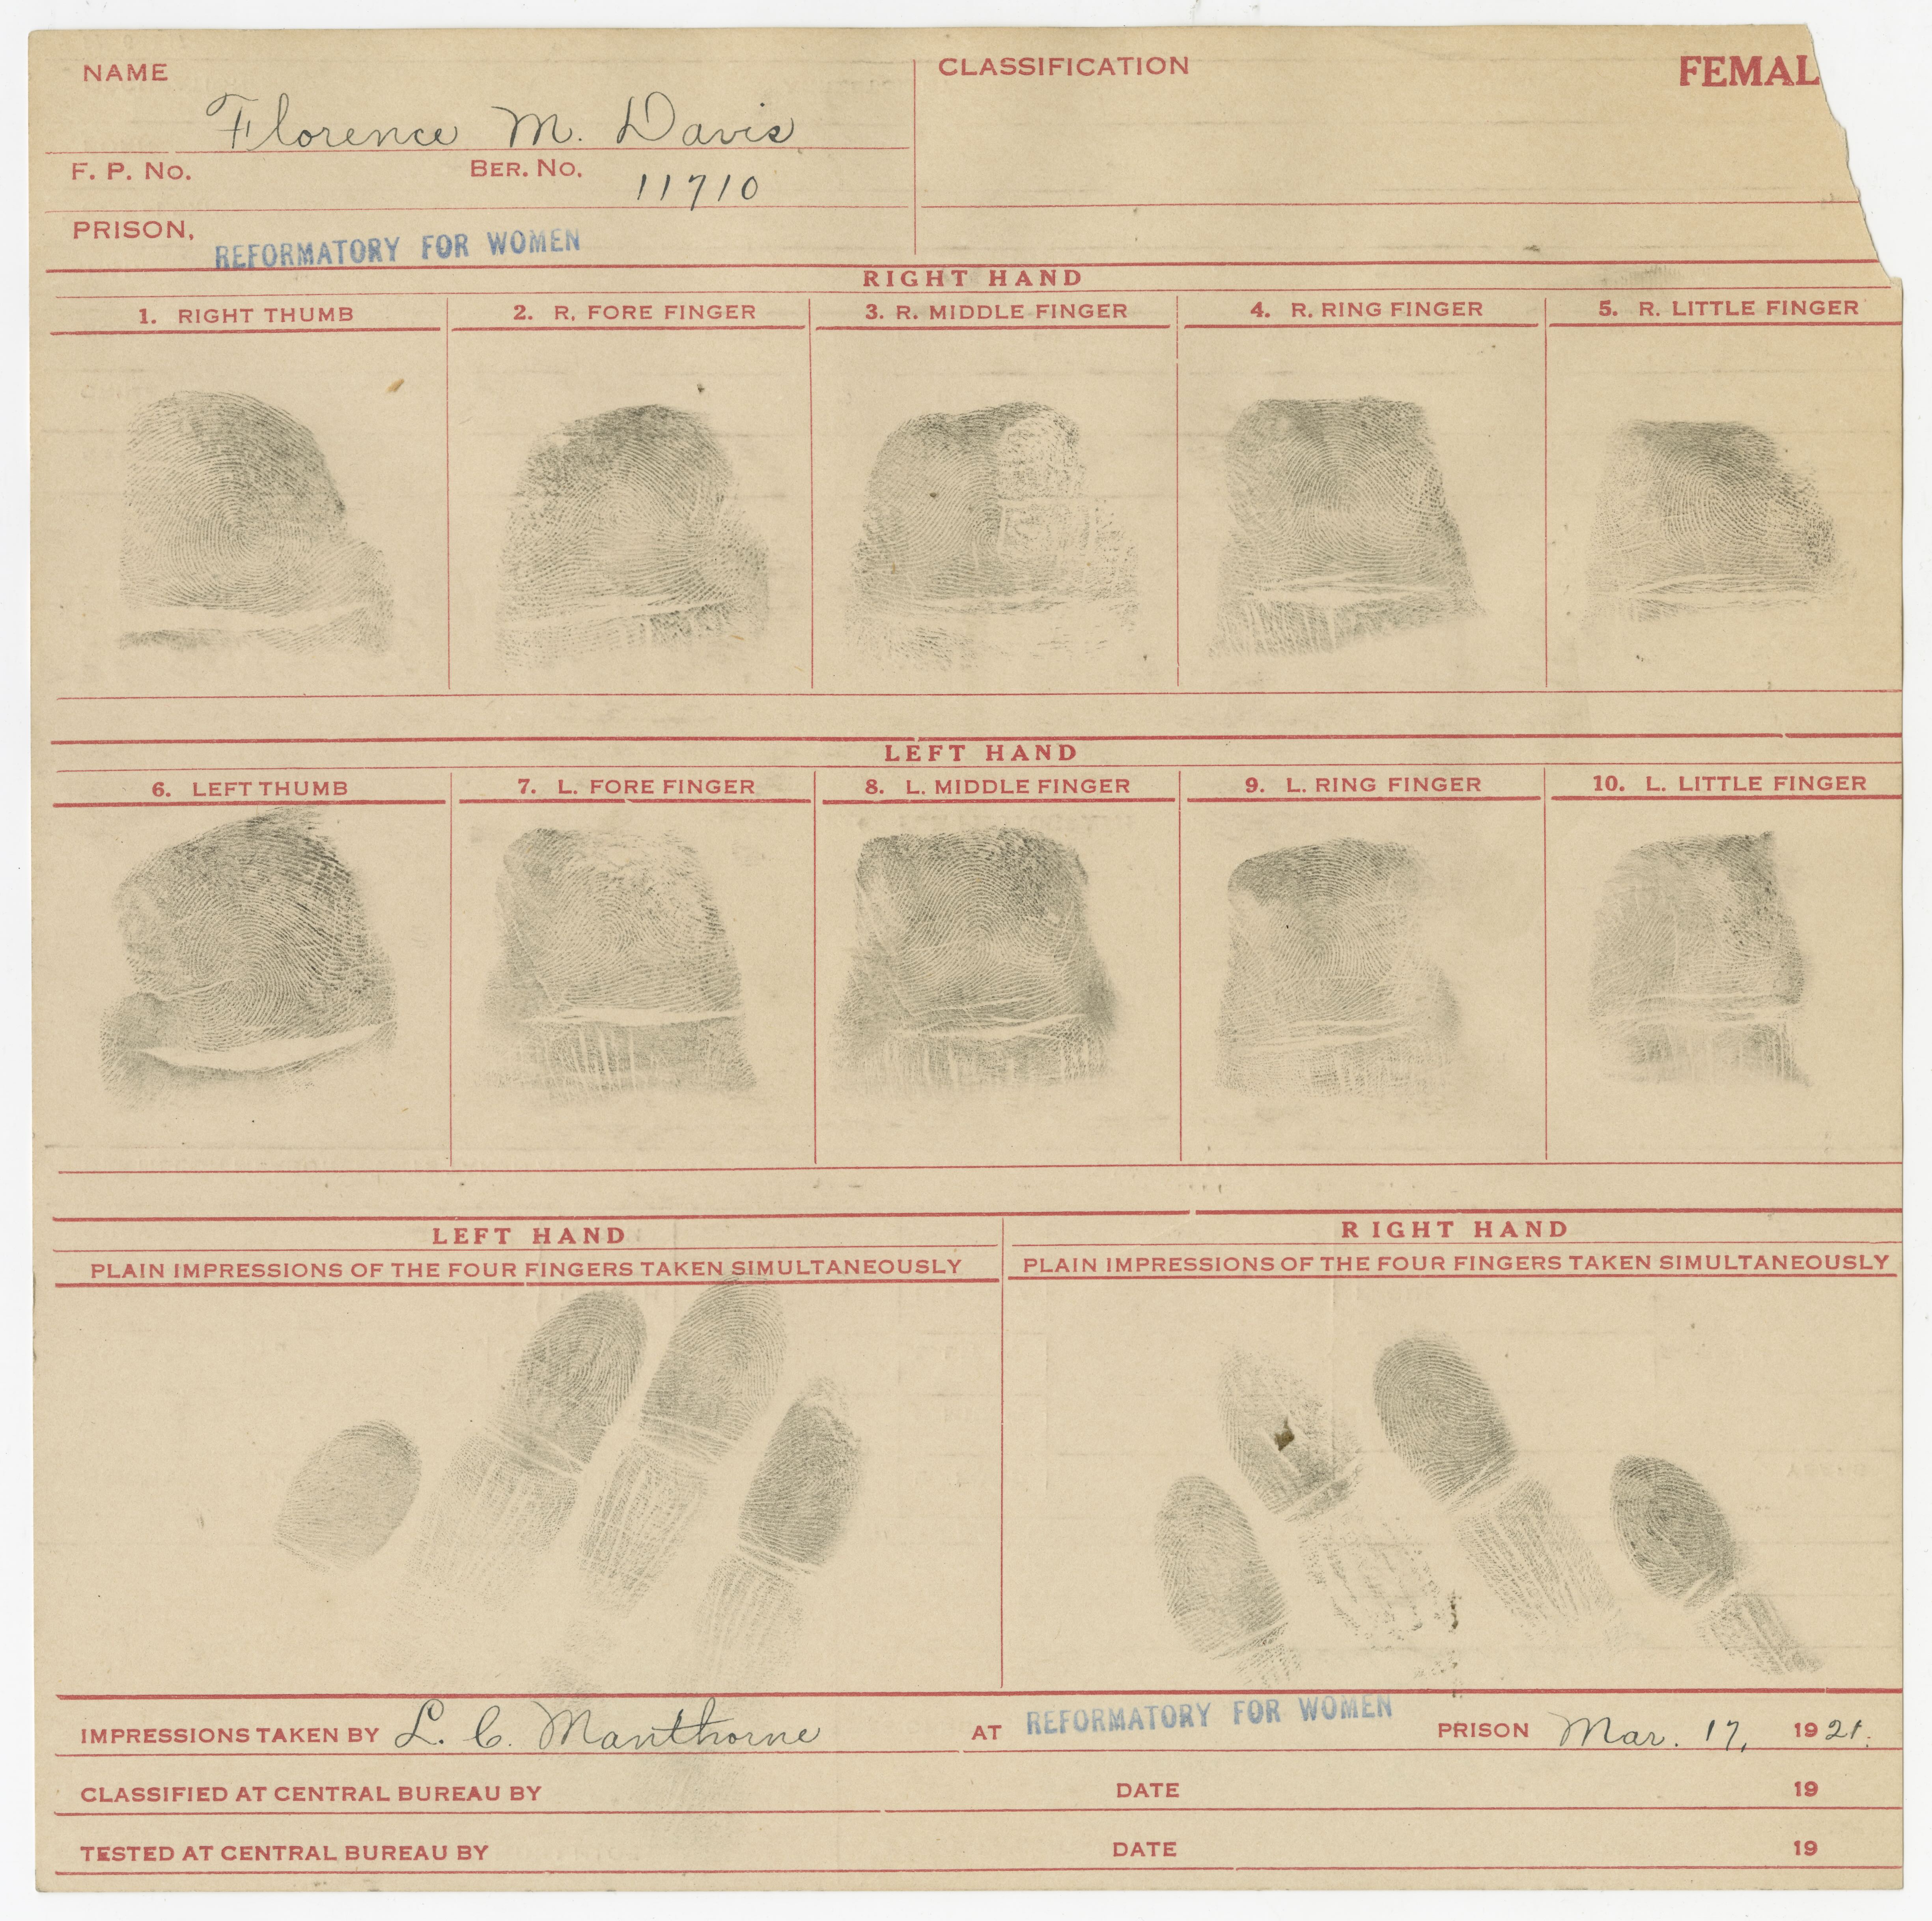 NAME
CLASSIFICATION
FEMAL
Florence M. Davis
F. P. No.
BER. No. 11710
PRISON, REFORMATORY FOR WOMEN
RIGHT HAND
1. RIGHT THUMB
2. R. FORE FINGER
3. R. MIDDLE FINGER
4. R. RING FINGER
5. R. LITTLE FINGER
LEFT HAND
6. LEFT THUMB
7. L. FORE FINGER
8. L. MIDDLE FINGER
9. L. RING FINGER
10. L. LITTLE FINGER
LEFT HAND
PLAIN IMPRESSIONS OF THE FOUR FINGERS TAKEN SIMULTANEOUSLY
RIGHT HAND
PLAIN IMPRESSIONS OF THE FOUR FINGERS TAKEN SIMULTANEOUSLY
IMPRESSIONS TAKEN BY L. C. Manthorne AT REFORMATORY FOR WOMEN PRISON Mar. 17, 1921.
CLASSIFIED AT CENTRAL BUREAU BY DATE 19
TESTED AT CENTRAL BUREAU BY DATE 19